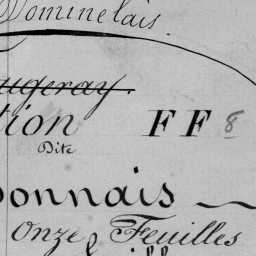 Dominelais.
ugeray.
tion FF 8
Dite
onnais
Onze Feuilles